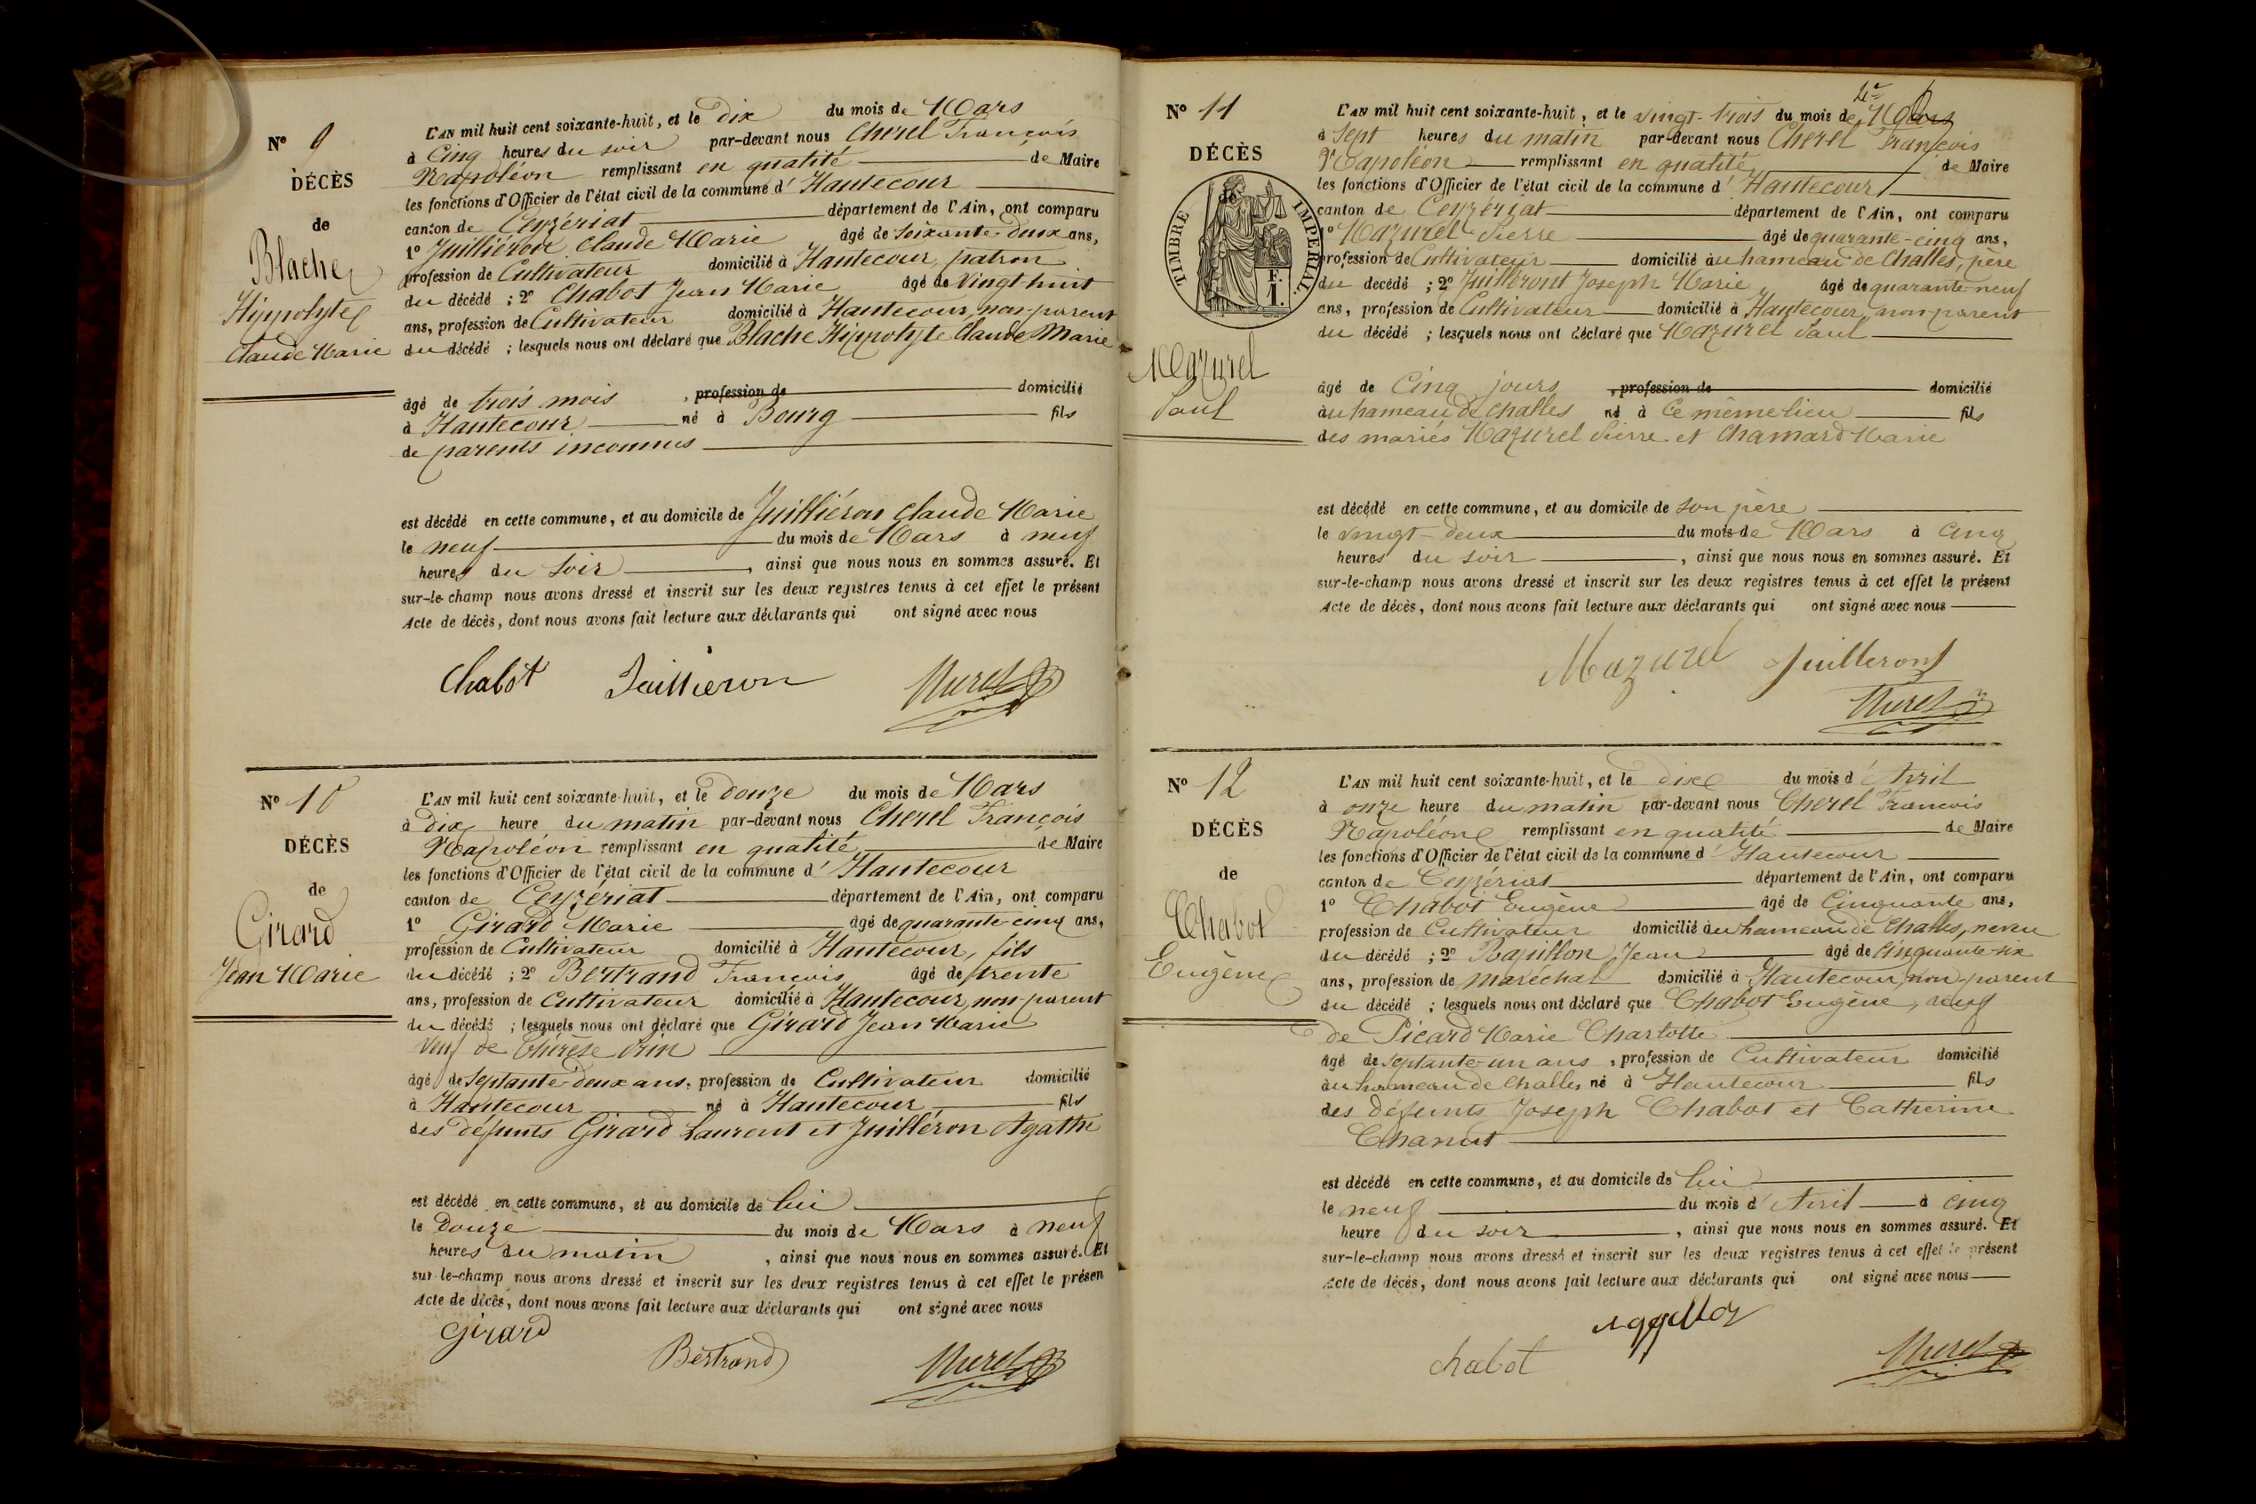 N° 9
DÉCÈS
de
Blache
Hippolyte
Claude Marie
L'AN mil huit cent soixante-huit, et le dix du mois de Mars
à Cinq heures du soir par-devant nous Cherel François
Napoléon remplissant en qualité de Maire
les fonctions d'Officier de l'état civil de la commune d' Hautecour
canton de Ceyzériat département de l'Ain, ont comparu
1° Juilliéron Claude Marie âgé de soixante-deux ans,
profession de Cultivateur domicilié à Hautecour, patron
du décédé ; 2° Chabot Jean Marie âgé de vingt-huit
ans, profession de Cultivateur domicilié à Hautecour, non parent
du décédé ; lesquels nous ont déclaré que Blache Hippolyte Claude Marie
âgé de trois mois , profession de domicilié
à Hautecour né à Bourg fils
de parents inconnus
est décédé en cette commune, et au domicile de Juilliéron Claude Marie
le neuf du mois de Mars à neuf
heures du soir , ainsi que nous nous en sommes assuré. Et
sur-le-champ nous avons dressé et inscrit sur les deux registres tenus à cet effet le présent
Acte de décès, dont nous avons fait lecture aux déclarants qui ont signé avec nous
Chabot Juillieron
N° 10
DÉCÈS
de
Girard
Jean Marie
L'AN mil huit cent soixante-huit, et le douze du mois de Mars
à Dix heure du matin par-devant nous Cherel François
Napoléon remplissant en qualité de Maire
les fonctions d'Officier de l'état civil de la commune d' Hautecour
canton de Ceyzériat département de l'Ain, ont comparu
1° Girard Marie âgé de quarante-cinq ans,
profession de Cultivateur domicilié à Hautecour, fils
du décédé ; 2° Bertrand François âgé de trente
ans, profession de Cultivateur domicilié à Hautecour, non parent
du décédé ; lesquels nous ont déclaré que Girard Jean Marie
veuf de Thérèse
âgé de septante-deux ans, profession de Cultivateur domicilié
à Hautecour né à Hautecour fils
des défunts Girard Laurent et Juilléron Agathe
est décédé en cette commune, et au domicile de lui
le Douze du mois de Mars à neuf
heures du matin , ainsi que nous nous en sommes assuré. Et
sur-le-champ nous avons dressé et inscrit sur les deux registres tenus à cet effet le présen
Acte de décès, dont nous avons fait lecture aux déclarants qui ont signé avec nous
Girard
Bertrand
N° 11
DÉCÈS
de
TIMBRE IMPERIAL
F.
1.
Mazurel
Paul
L'AN mil huit cent soixante-huit, et le vingt-trois du mois de Mars
à Sept heures du matin par-devant nous Cherel François
Napoléon remplissant en qualité de Maire
les fonctions d'Officier de l'état civil de la commune d' Hautecour
canton de Ceyzériat département de l'Ain, ont comparu
1° Mazurel Pierre âgé de quarante-cinq ans,
profession de Cultivateur domicilié au hameau de Challes, père
du décédé ; 2° Juilleront Joseph Marie âgé de quarante-neuf
ans, profession de Cultivateur domicilié à Hautecour, non parent
du décédé ; lesquels nous ont déclaré que Mazurel Paul
âgé de Cinq jours , profession de domicilié
au hameau de Challes né à Ce même lieu fils
des mariés Mazurel Pierre et Chamard Marie
est décédé en cette commune, et au domicile de son père
le vingt-deux du mois de Mars à cinq
heures du soir , ainsi que nous nous en sommes assuré. Et
sur-le-champ nous avons dressé et inscrit sur les deux registres tenus à cet effet le présent
Acte de décès, dont nous avons fait lecture aux déclarants qui ont signé avec nous
Mazurel Juilleront
N° 12
DÉCÈS
de
Chabot
Eugène
L'AN mil huit cent soixante-huit, et le dix du mois d' Avril
à onze heure du matin par-devant nous Cherel François
Napoléon remplissant en qualité de Maire
les fonctions d'Officier de l'état civil de la commune d' Hautecour
canton de Ceyzériat département de l'Ain, ont comparu
1° Chabot Eugène âgé de Cinquante ans,
profession de Cultivateur domicilié au hameau de Challes, neveu
du décédé ; 2° Papillon Jean âgé de Cinquante-six
ans, profession de maréchal domicilié à Hautecour, non parent
du décédé ; lesquels nous ont déclaré que Chabot Eugène, veuf
de Picard Marie Charlotte
âgé de septante-un ans , profession de Cultivateur domicilié
au hameau de Challes né à Hautecour fils
des défunts Joseph Chabot et Catherine
Chanut
est décédé en cette commune, et au domicile de lui
le neuf du mois d' Avril à cinq
heure du soir , ainsi que nous nous en sommes assuré. Et
sur-le-champ nous avons dressé et inscrit sur les deux registres tenus à cet effet le présent
Acte de décès, dont nous avons fait lecture aux déclarants qui ont signé avec nous
chabot